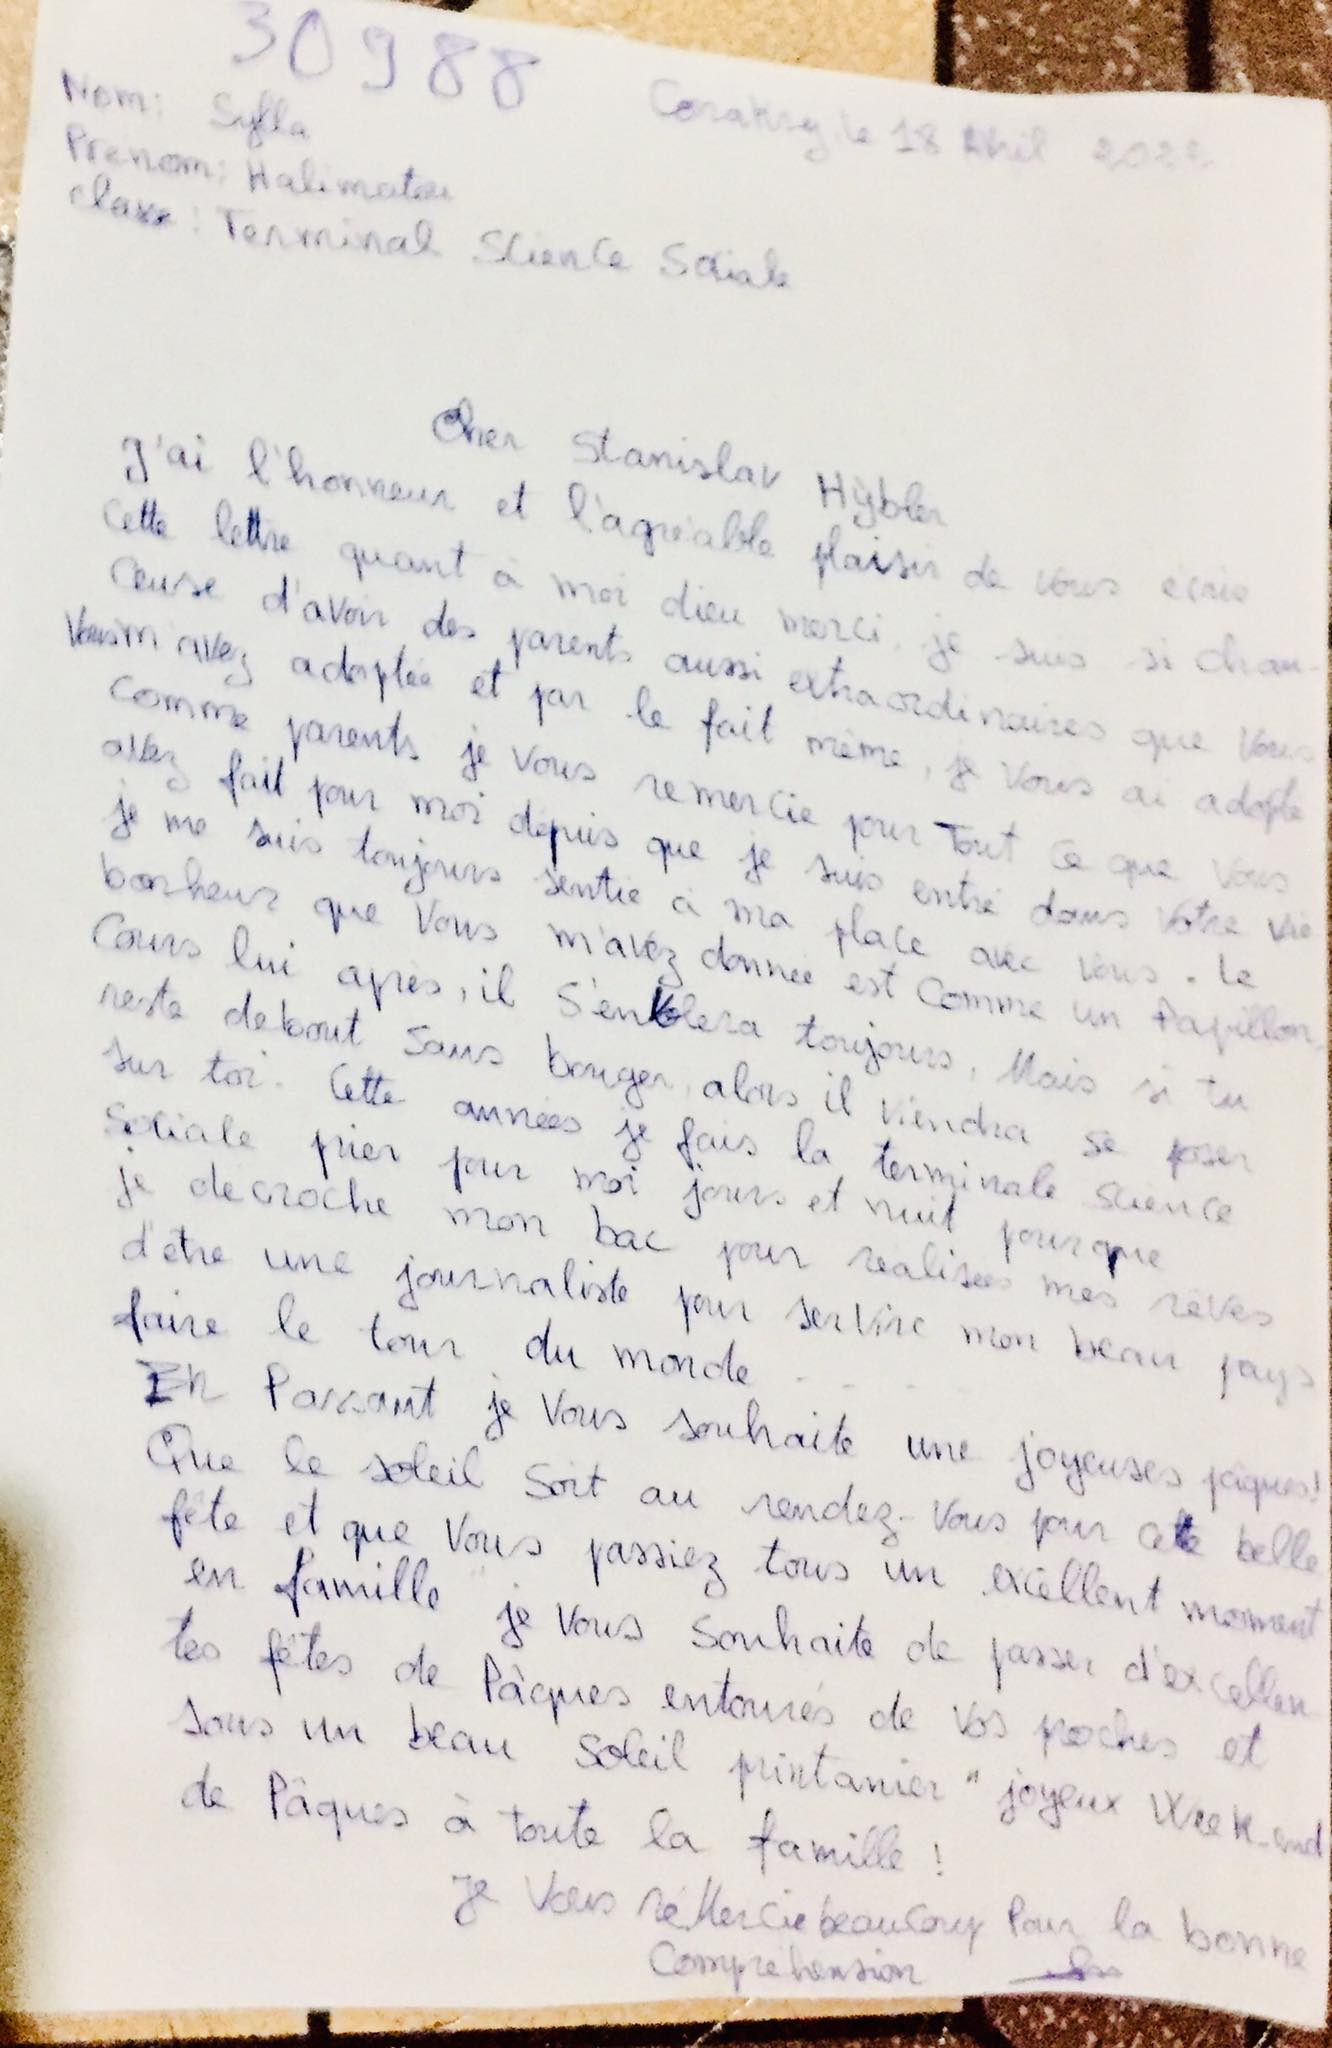 30988
Conakry, le 18 Avril 2022
Nom: Sylla
Prénom: Halimatou
Classe: Terminal Science Sociale
Cher Stanislav Hÿbler
J'ai l'honneur et l'agréable plaisir de vous écrie
Cette lettre quant à moi dieu merci, je suis si chan-
ceuse d'avoir des parents aussi extraordinaires que vous
Vous m'avez adoptée et par le fait même, je vous ai adopté
Comme parents je vous remercie pour Tout ce que vous
avez fait pour moi depuis que je suis entré dans votre vie
je me suis toujours sentie à ma place avec vous. Le
bonheur que vous m'avez donnée est comme un Papillon,
Cours lui après, il s'envolera toujours, Mais si tu
reste debout sans bouger, alors il viendra se poser
sur toi. Cette années je fais la terminale science
Sociale prier pour moi jours et nuit pourque
je décroche mon bac pour réalisées mes rêves
d'être une journaliste pour servire mon beau pays
faire le tour du monde - - - -
En Passant je vous souhaite une joyeuses pâques!
Que le soleil soit au rendez-vous pour cette belle
fête et que vous passiez tous un excellent moment
en famille " je vous souhaite de passer d'excellen
tes fêtes de Pâques entourés de vos proches et
sous un beau soleil printanier " joyeux Week-end
de Pâques à toute la famille !
Je vous réMercie beaucoup Pour la bonne
Compréhension